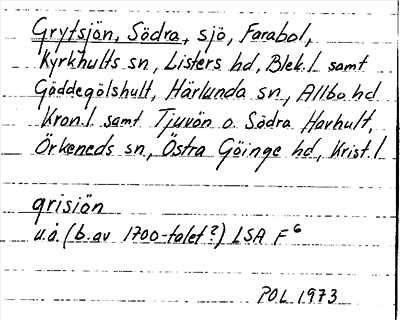 Grytsjön, Södra, sjö, Farabol,
Kyrkhults sn, Listers hd, Blek.l. samt
Gäddegölshult, Härlunda sn, Allbo hd
Kron.l. samt Tjuvön o. Södra Havhult,
Örkeneds sn, Östra Göinge hd, Krist.l
grisiön
u.å. (b. av 1700-talet?) LSA F⁶
POL 1973